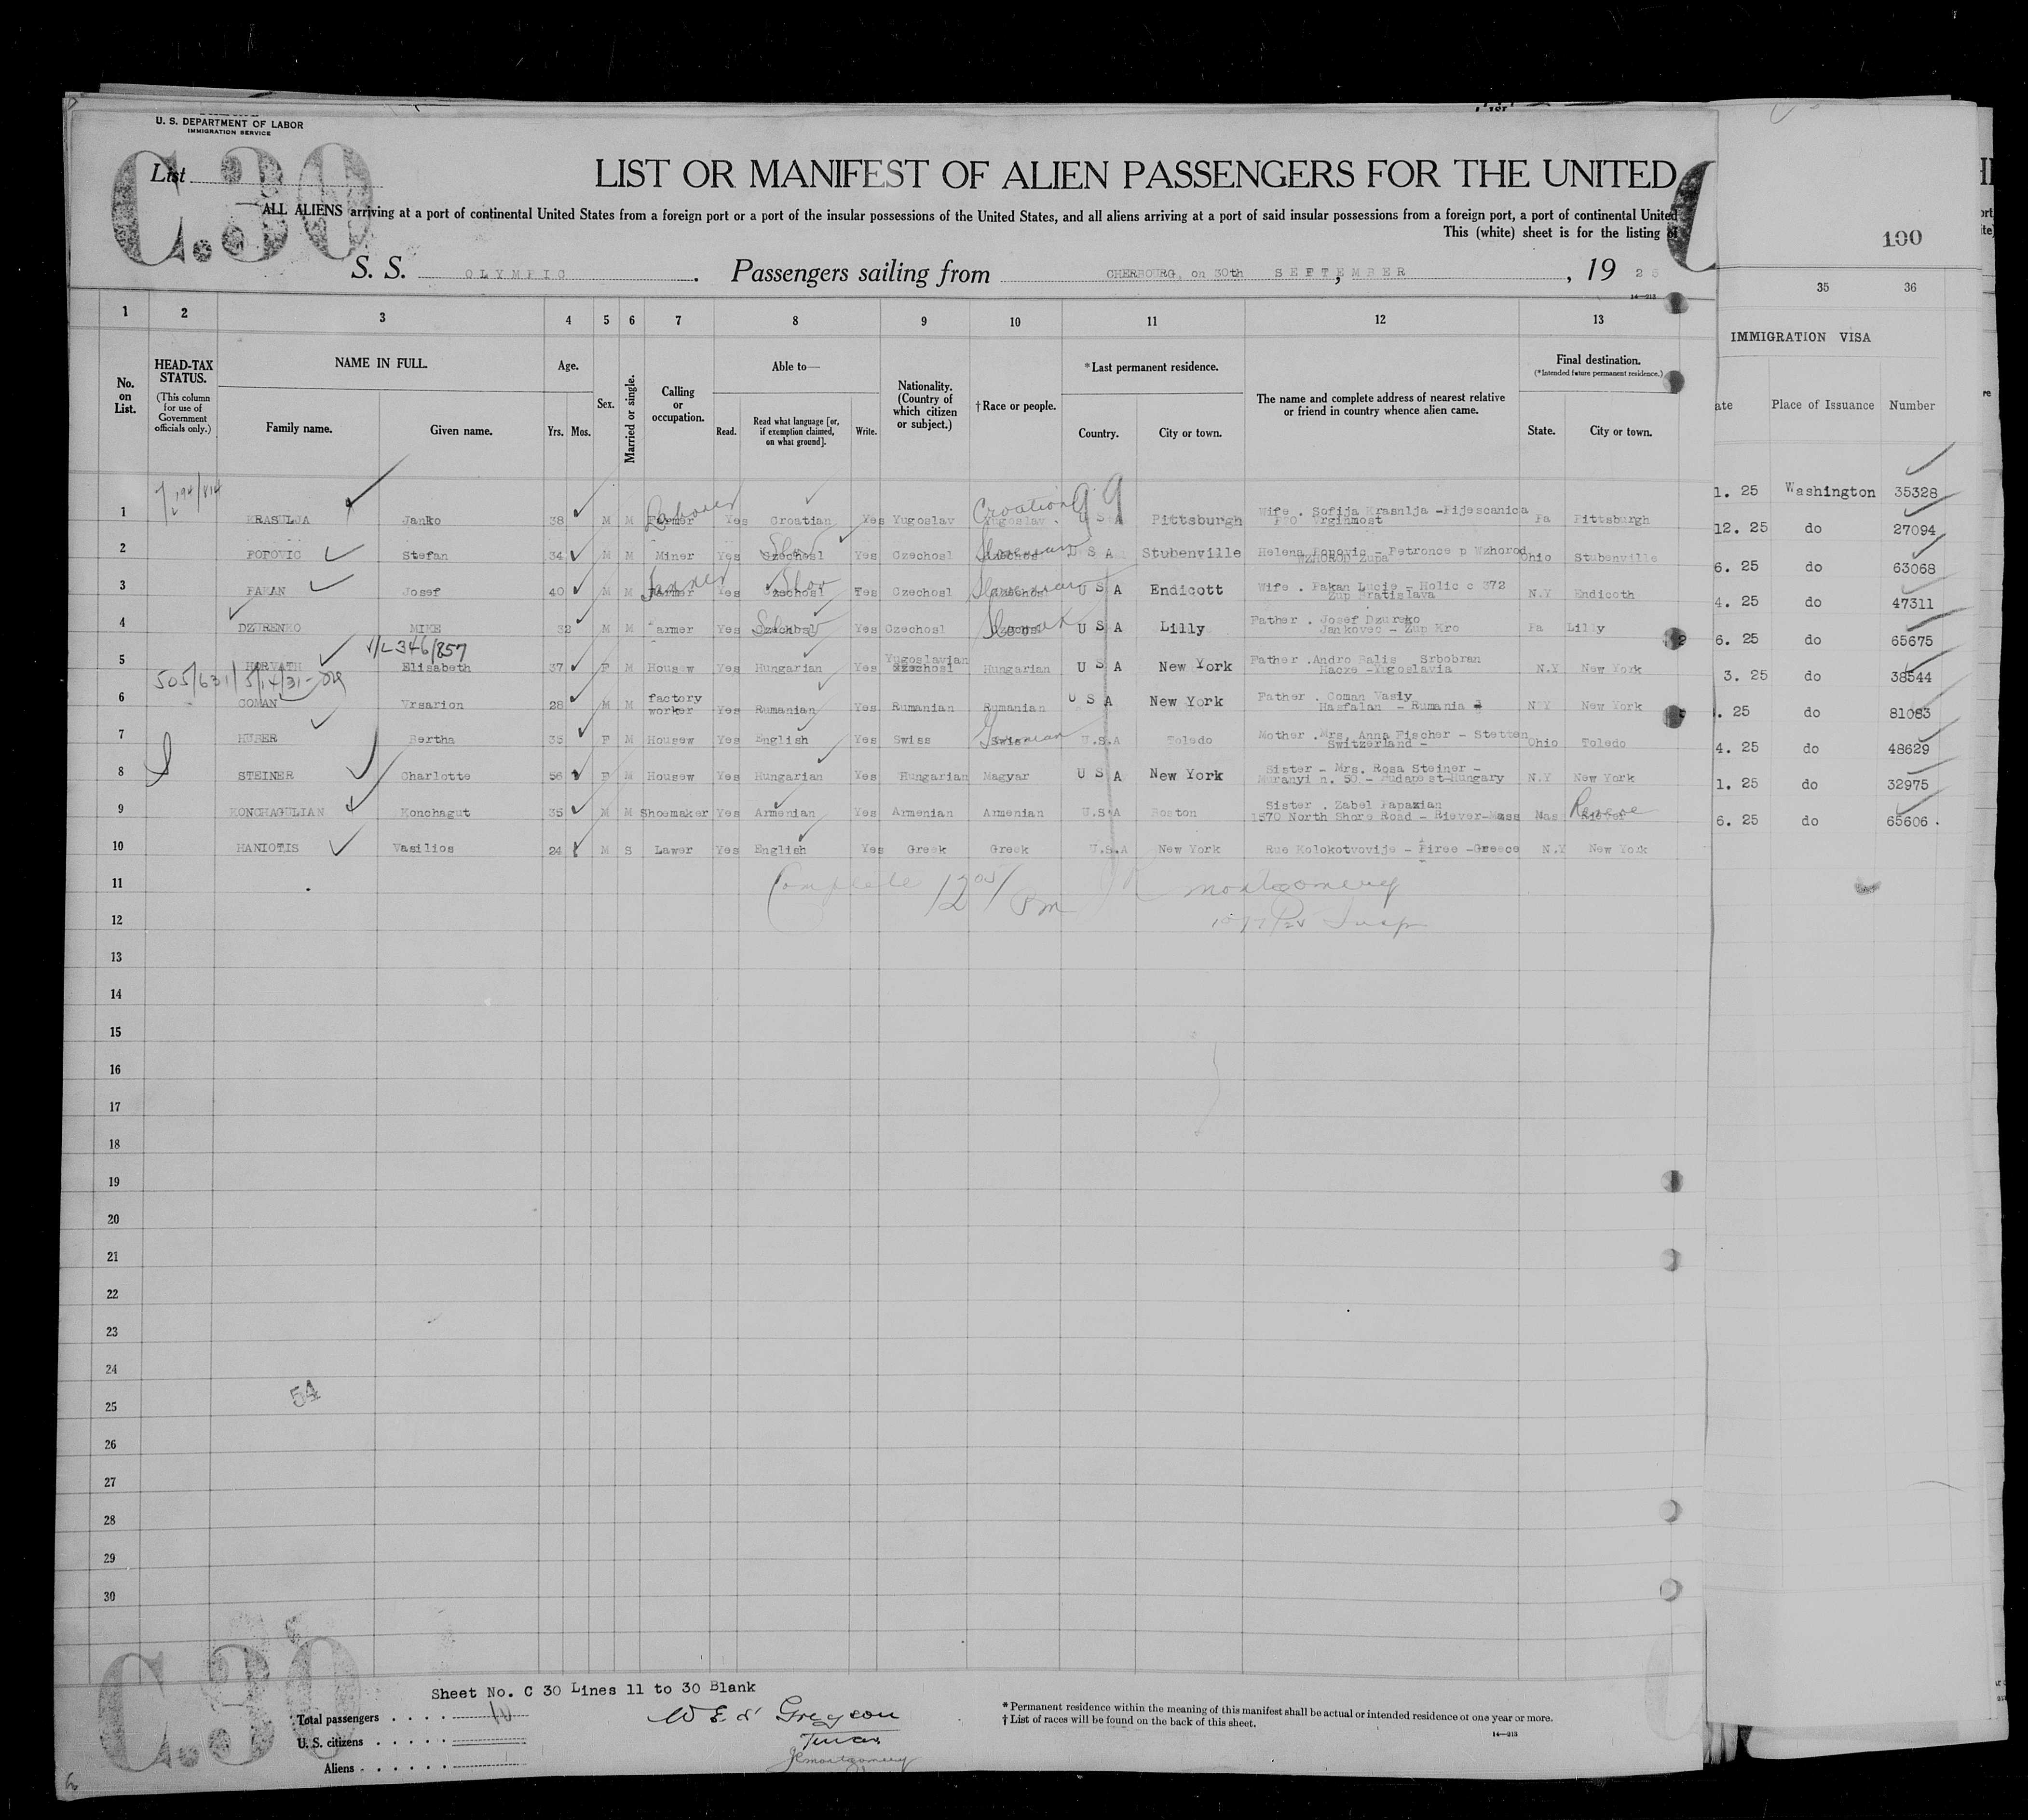 U. S. DEPARTMENT OF LABOR
IMMIGRATION SERVICE
C.30
List
LIST OR MANIFEST OF ALIEN PASSENGERS FOR THE UNITED
ALL ALIENS arriving at a port of continental United States from a foreign port or a port of the insular possessions of the United States, and all aliens arriving at a port of said insular possessions from a foreign port, a port of continental United
This (white) sheet is for the listing
100
S. S. OLYMPIC. Passengers sailing from CHERBOURG, on 30th SEPTEMBER, 19 25
14—213
1 2 3 4 5 6 7 8 9 10 11 12 13 35 36
No. on List.
HEAD-TAX STATUS.
(This column for use of Government officials only.)
NAME IN FULL.
Family name. Given name.
Age.
Yrs. Mos.
Sex.
Married or single.
Calling or occupation.
Able to—
Read. Read what language [or, if exemption claimed, on what ground]. Write.
Nationality. (Country of which citizen or subject.)
†Race or people.
*Last permanent residence.
Country. City or town.
The name and complete address of nearest relative or friend in country whence alien came.
Final destination.
(*Intended future permanent residence.)
State. City or town.
IMMIGRATION VISA
ate Place of Issuance Number
1 KRASULJA Janko 38 M M Farmer Laborer Yes Croatian Yes Yugoslav Yugoslav Croatian U S A Pittsburgh Wife . Sofija Krasnlja -Pijescanica Vrginmost Pa Pittsburgh
2 POPOVIC Stefan 34 M M Miner Yes Czechosl Slov Yes Czechosl Czechosl U S A Stubenville Helena Popovic - Petronce p Wzhorod WZHOROD Zupa Ohio Stubenville
3 PAKAN Josef 40 M M Farmer Tanner Yes Czechosl Slov Yes Czechosl Czechosl U S A Endicott Wife . Pakan Lucie - Holic c 372 Zup Bratislava N.Y Endicoth
4 DZURENKO MIKE 32 M M armer Yes Czechosl Slov Yes Czechosl Czechosl Slovak U S A Lilly Father . Josef Dzureko Jankovec - Zup Kro Pa Lilly
V/L 346/857
5 HORVATH Elisabeth 37 F M Housew Yes Hungarian Yes Yugoslavian Czechosl Hungarian U S A New York Father .Andro Balis Srbobran Hacze -Yugoslavia N.Y New York
505/631
6 COMAN Vrsarion 28 M M factory worker Yes Rumanian Yes Rumanian Rumanian U S A New York Father . Coman Vasiy Hasfalan - Rumania N Y New York
7 HUBER Bertha 35 F M Housew Yes English Yes Swiss Swiss German U.S.A Toledo Mother .Mrs. Anna Fischer - Stetten Switzerland - Ohio Toledo
8 STEINER Charlotte 56 F M Housew Yes Hungarian Yes Hungarian Magyar U S A New York Sister - Mrs. Rosa Steiner - Muranyi n. 50 - Budapest-Hungary N.Y New York
9 KONCHAGULIAN Konchagut 35 M M Shoemaker Yes Armenian Yes Armenian Armenian U.S.A Boston Sister . Zabel Papazian 1570 North Shore Road - Riever-Mass Mas Riever Revere
10 HANIOTIS Vasilios 24 M S Lawer Yes English Yes Greek Greek U.S.A New York Rue Kolokotvovije - Piree -Greece N.Y New York
1. 25 Washington 35328
12. 25 do 27094
6. 25 do 63068
4. 25 do 47311
6. 25 do 65675
3. 25 do 38544
. 25 do 81083
4. 25 do 48629
1. 25 do 32975
6. 25 do 65606 .
11 Complete 12 05/ Pm JR Montgomery
12 Insp
13
14
15
16
17
18
19
20
21
22
23
24
54
25
26
27
28
29
30
C.30
Sheet No. C 30 Lines 11 to 30 Blank
Total passengers . . . . 10
U. S. citizens . . . . .
Aliens . . . . . .
Greyson
Montgomery
* Permanent residence within the meaning of this manifest shall be actual or intended residence of one year or more.
† List of races will be found on the back of this sheet.
14—213